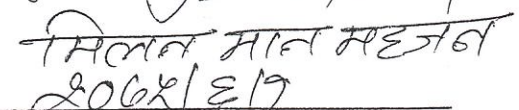 मिलन मान महर्जन
२०७५/६/१